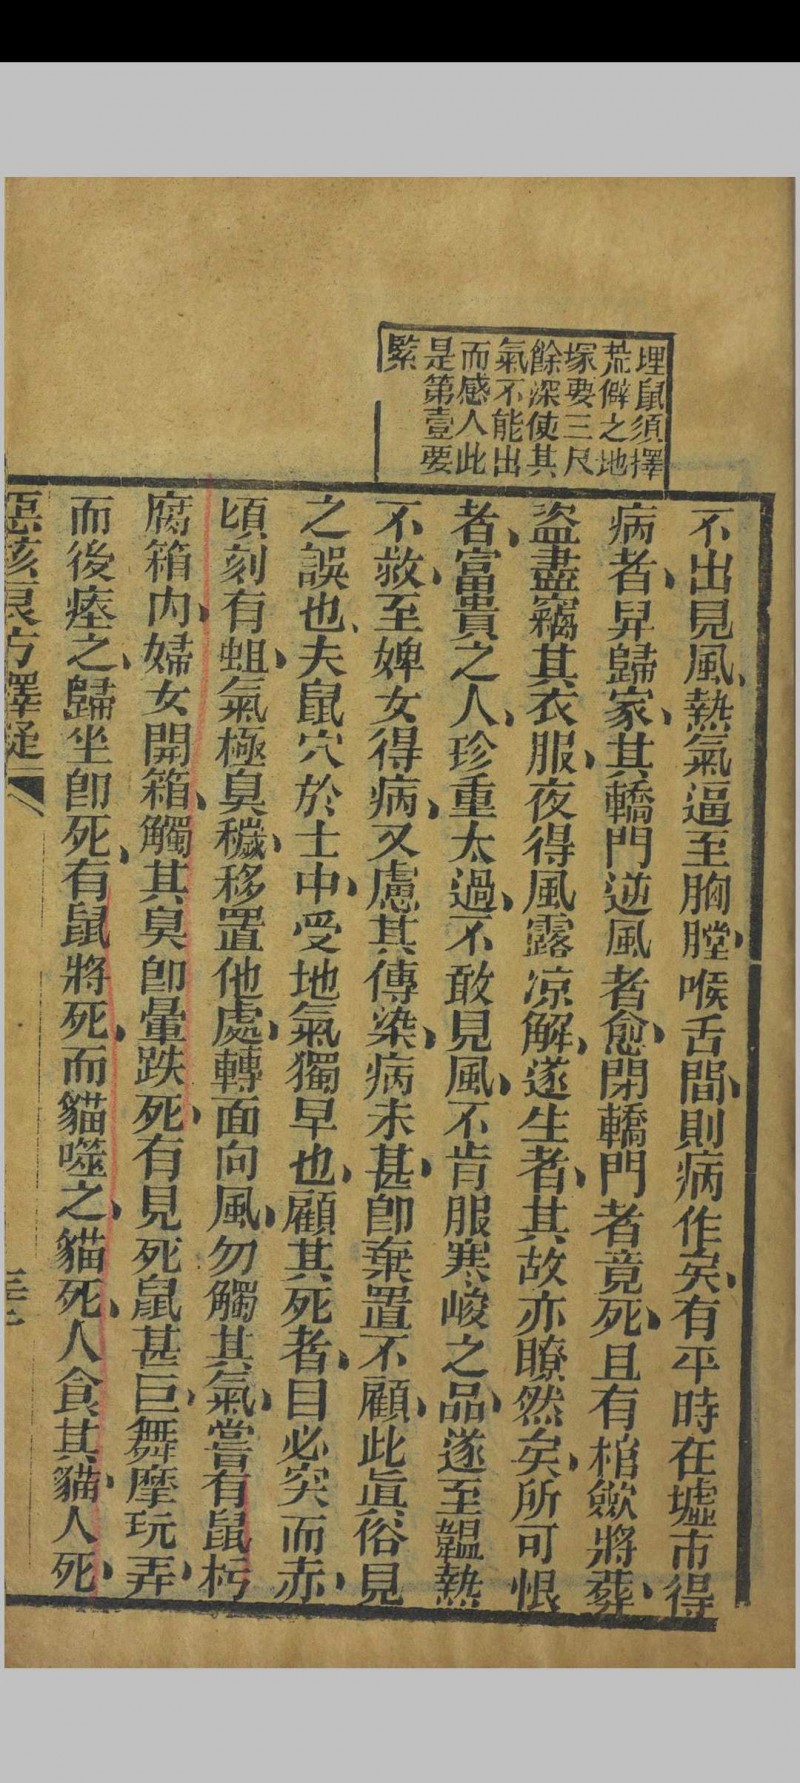 埋鼠須擇
荒僻之地
塚要三尺
餘深使其
氣不能出
而感人此
是第壹要
緊
不出見風、熱氣逼至胸膛、喉舌間、則病作矣、有平時在墟市得
病者、舁歸家、其轎門逆風者愈、閉轎門者竟死、且有棺歛將葬、
盗盡竊其衣服、夜得風露凉解、遂生者、其故亦瞭然矣、所可恨
者、富貴之人、珍重太過、不敢見風、不肯服寒峻之品、遂至韞熱
不救、至婢女得病、又慮其傳染、病未甚、卽棄置不顧、此眞俗見
之誤也、夫鼠穴於土中、受地氣獨早也、顧其死者、目必突而赤、
頃刻有蛆、氣極臭穢、移置他處、轉面向風、勿觸其氣、嘗有鼠朽
腐箱内、婦女開箱、觸其臭卽暈跌死、有見死鼠甚巨、舞摩玩弄、
而後瘞之、歸坐卽死、有鼠將死、而貓噬之、貓死、人食其貓、人死、
惡核良方釋疑